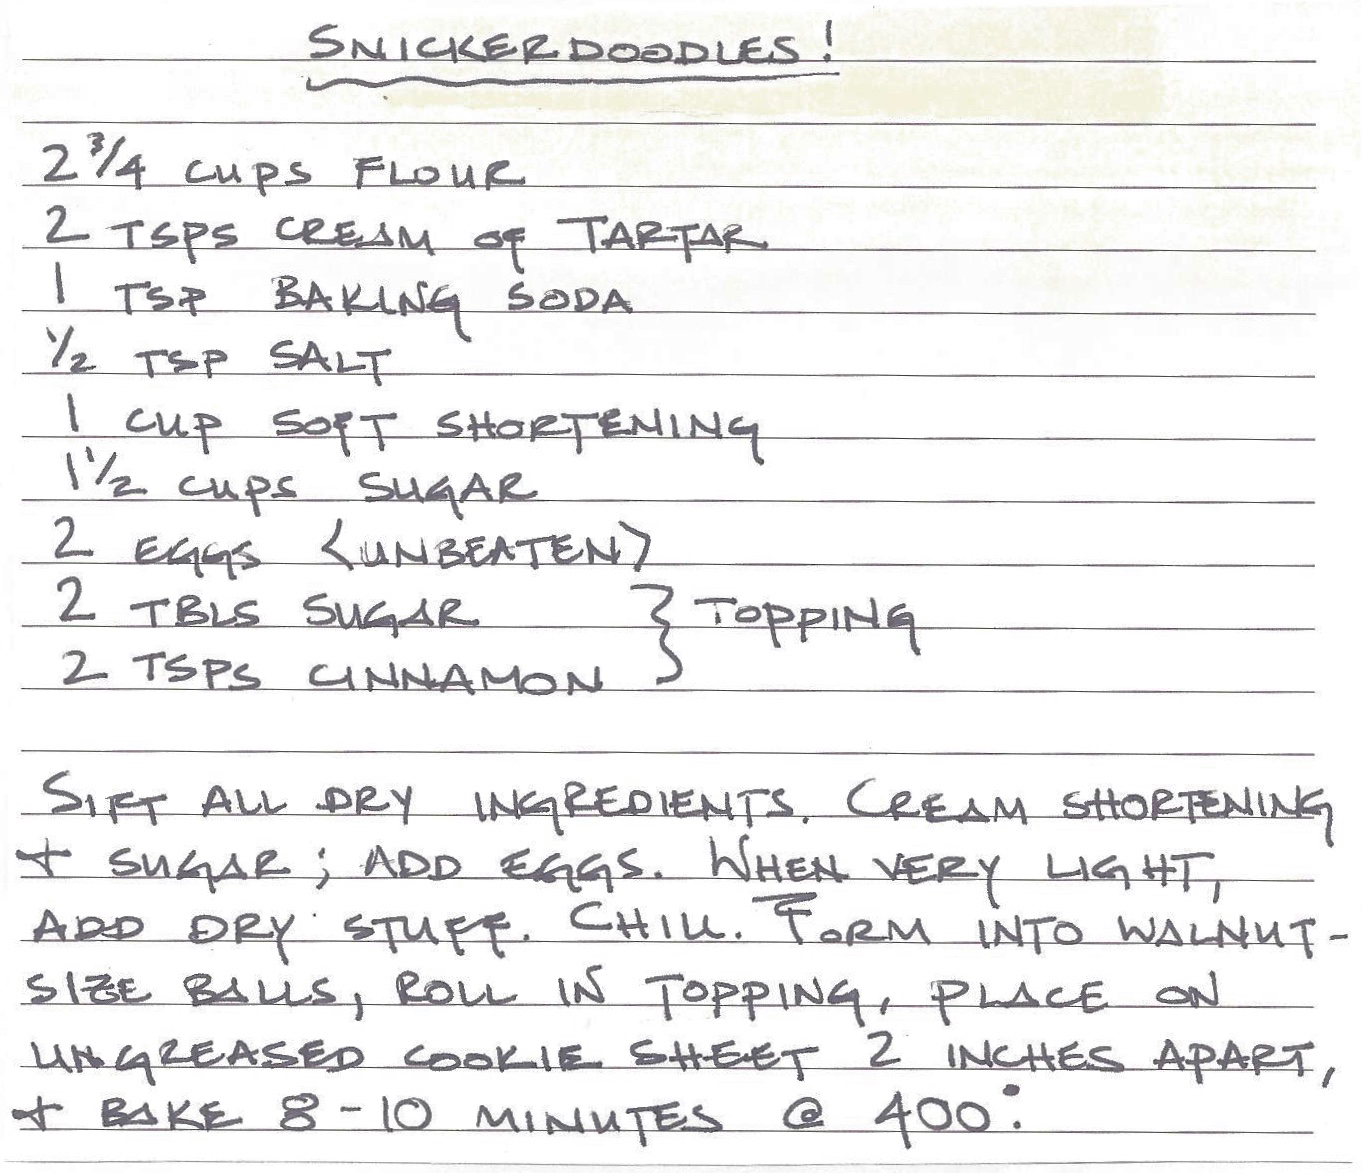 SNICKERDOODLES!
2 3/4 CUPS FLOUR
2 TSPS CREAM OF TARTAR
1 TSP BAKING SODA
1/2 TSP SALT
1 CUP SOFT SHORTENING
1 1/2 CUPS SUGAR
2 EGGS (UNBEATEN)
2 TBLS SUGAR } TOPPING
2 TSPS CINNAMON
SIFT ALL DRY INGREDIENTS. CREAM SHORTENING
+ SUGAR; ADD EGGS. WHEN VERY LIGHT,
ADD DRY STUFF. CHILL. FORM INTO WALNUT-
SIZE BALLS, ROLL IN TOPPING, PLACE ON
UNGREASED COOKIE SHEET 2 INCHES APART,
+ BAKE 8-10 MINUTES @ 400°.